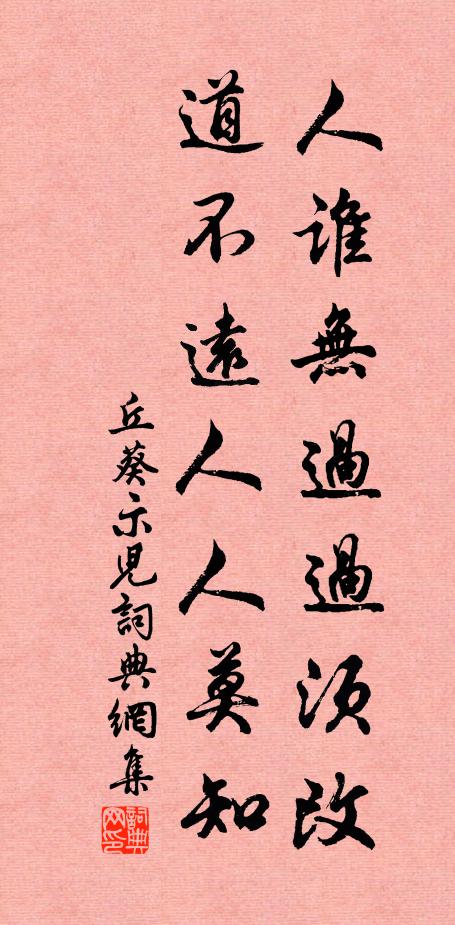 人誰無過過須改
道不遠人人莫知
丘葵示児詞典網集
詞典网印